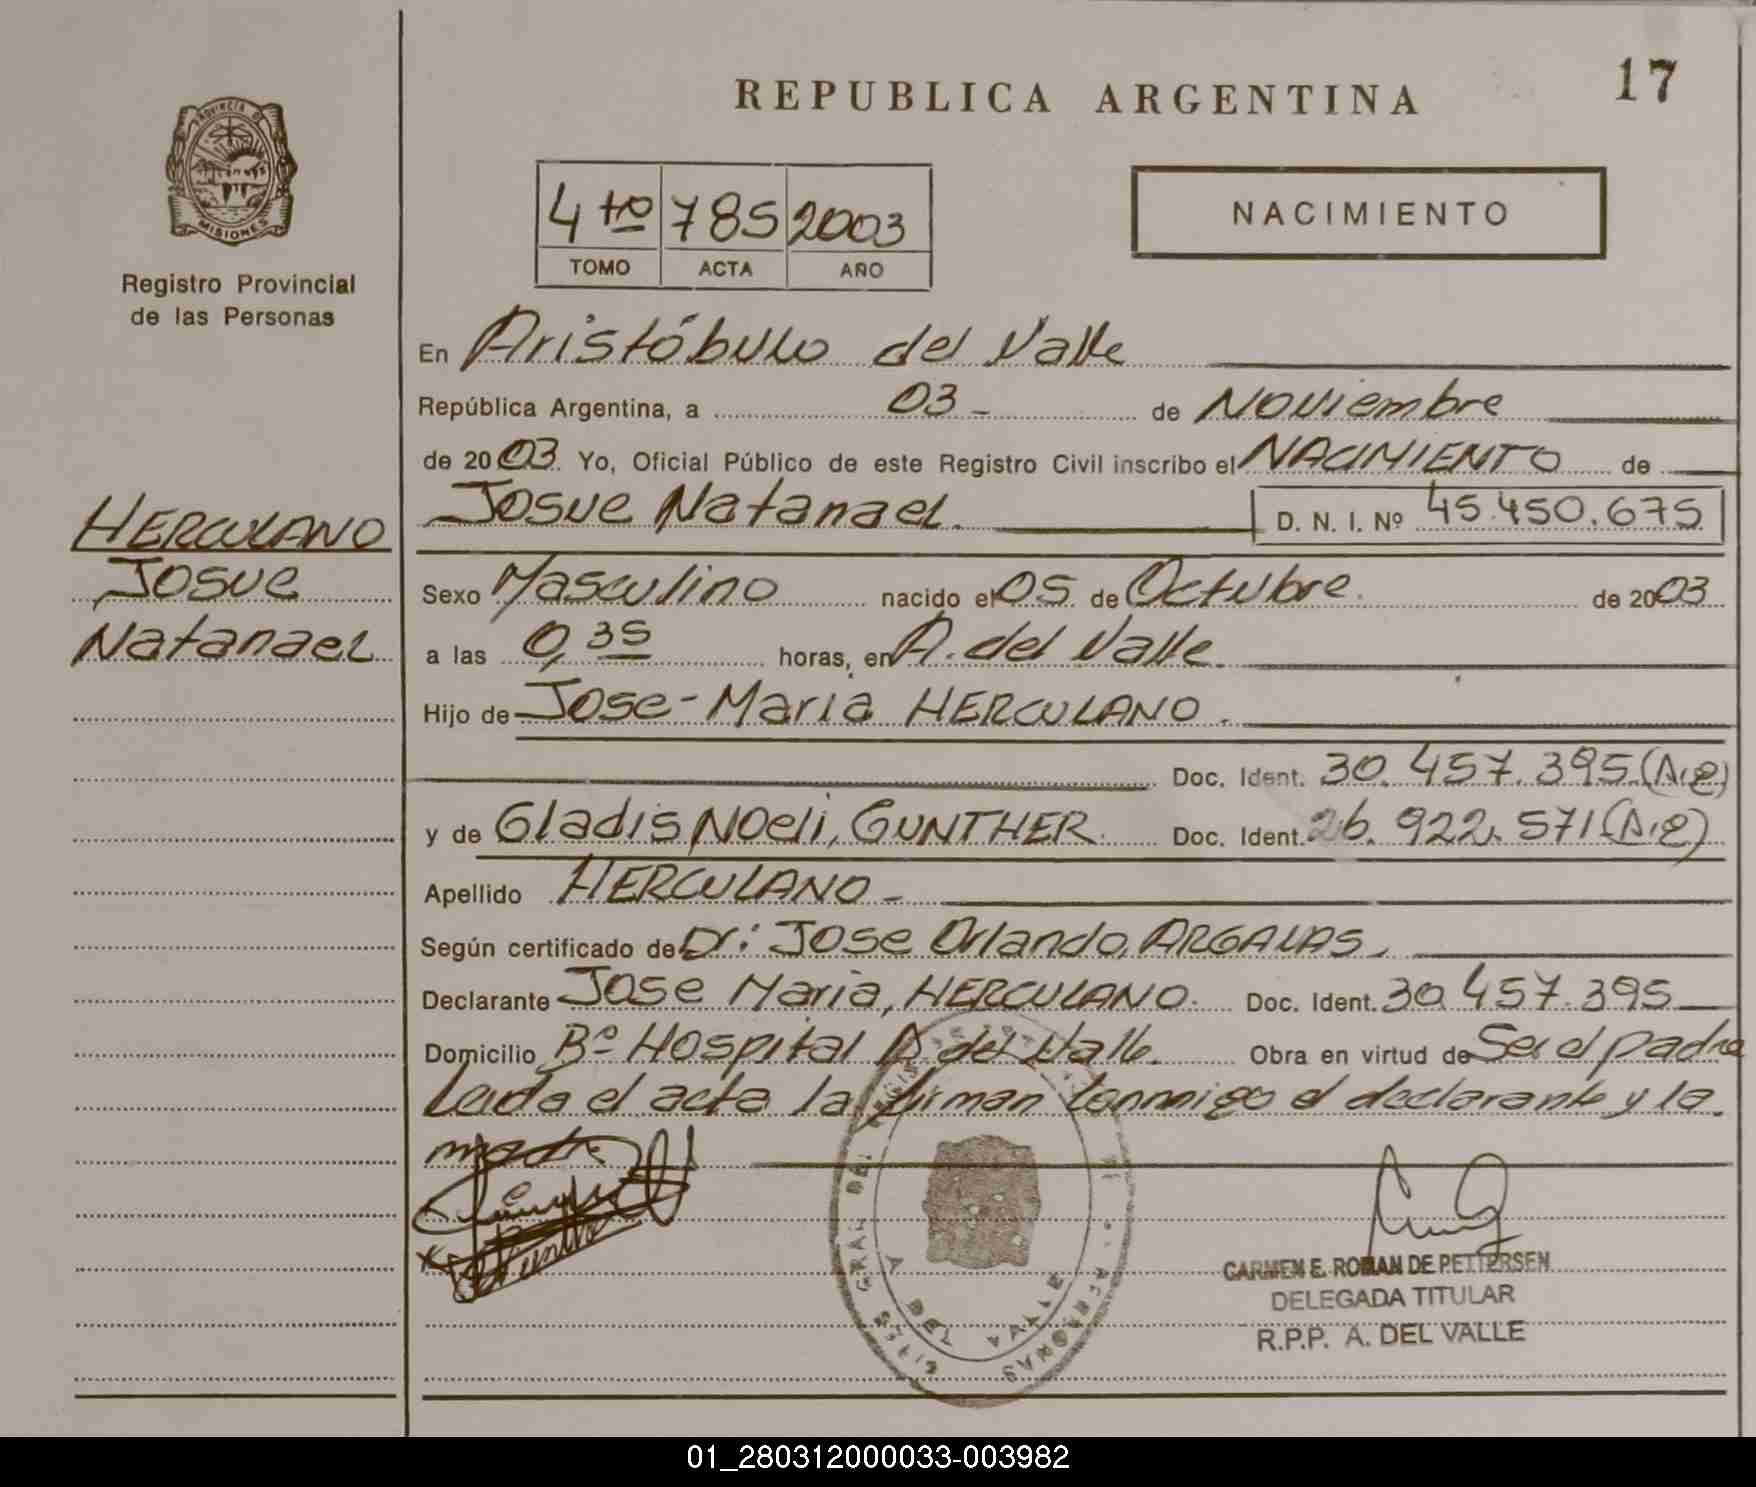 REPUBLICA ARGENTINA
17
PROVINCIA DE
MISIONES
Registro Provincial
de las Personas
4to 785 2003
TOMO ACTA AÑO
NACIMIENTO
En Aristóbulo del Valle
República Argentina, a 03 - de Noviembre
de 2003. Yo, Oficial Público de este Registro Civil inscribo el NACIMIENTO de
HERCULANO
Josue
Natanael
Josue Natanael. D. N. I. Nº 45.450.675
Sexo Masculino nacido el 05 de Octubre. de 2003
a las 0,35 horas, en A. del Valle.
Hijo de Jose-Maria HERCULANO.
Doc. Ident. 30.457.395 (A.e)
y de Gladis Noeli, GUNTHER. Doc. Ident. 26.922.571 (A.e)
Apellido HERCULANO -
Según certificado de Dr: Jose Orlando, ARGALAS.
Declarante Jose Maria, HERCULANO. Doc. Ident. 30.457.395
Domicilio Bº Hospital A. del Valle. Obra en virtud de Ser el padre
Leida el acta la firman conmigo el declarante y la
madre
CARMEN E. ROMAN DE PETTERSEN
DELEGADA TITULAR
R.P.P. A. DEL VALLE
A DEL VALLE
01_280312000033-003982